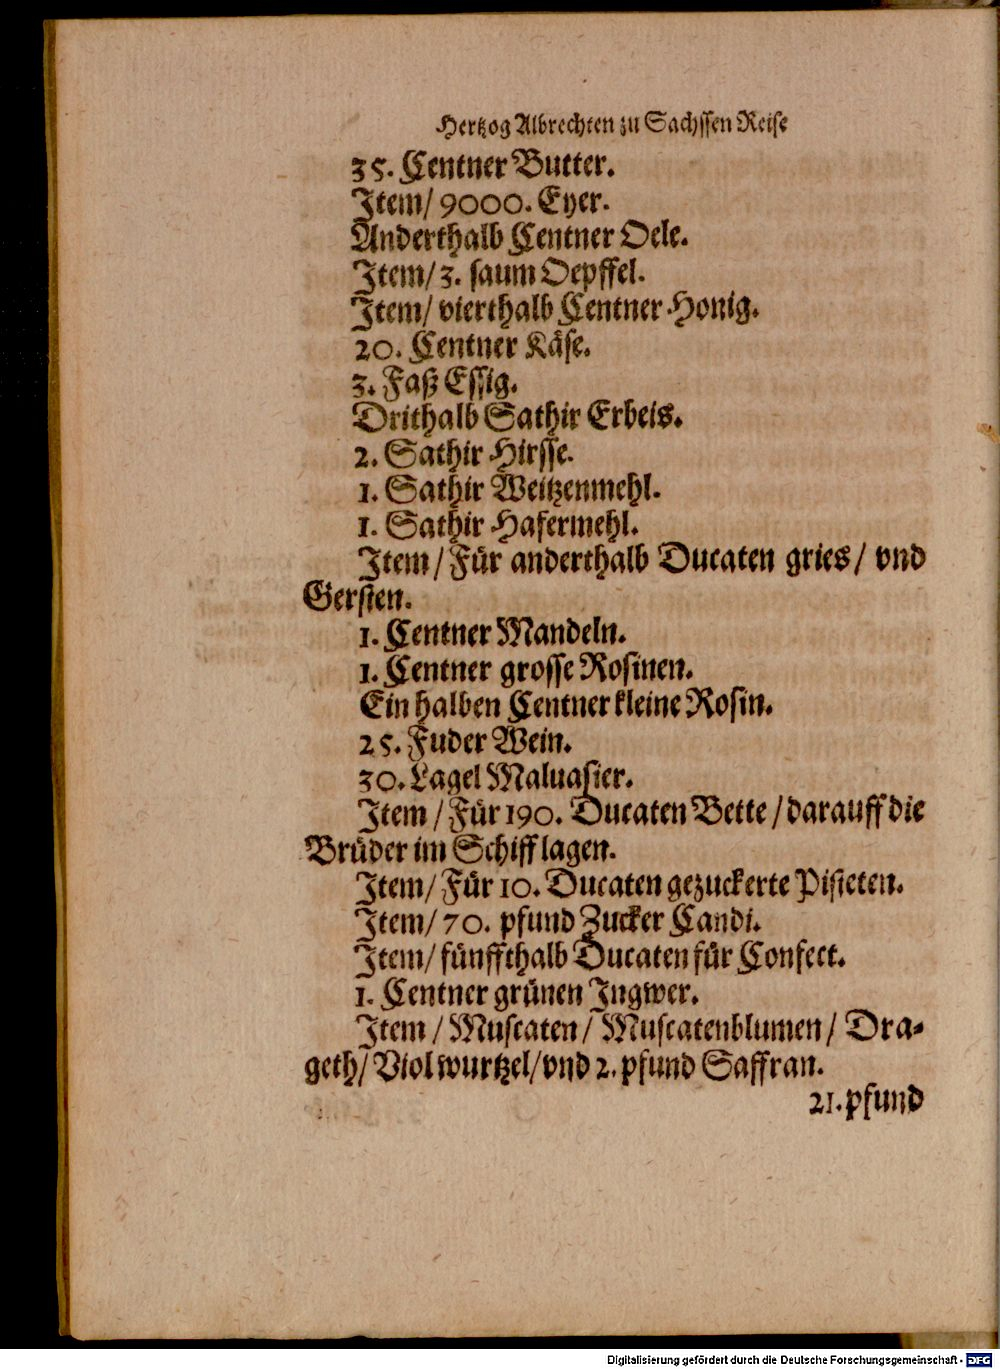 Hertzog Albrechten zu Sachssen Reise
35. Centner Butter.
Item/ 9000. Eyer.
Anderthalb Centner Oele.
Item/ 3. saum Oepffel.
Item/ vierthalb Centner Honig.
20. Centner Käse.
3. Faß Essig.
Drithalb Sathir Erbeis.
2. Sathir Hirsse.
1. Sathir Weitzenmehl.
1. Sathir Hafermehl.
Item / Für anderthalb Ducaten gries / vnd
Gersten.
1. Centner Mandeln.
1. Centner grosse Rosinen.
Ein halben Centner kleine Rosin.
25. Fuder Wein.
30. Lagel Maluasier.
Item / Für 190. Ducaten Bette / darauff die
Brüder im Schiff lagen.
Item/ Für 10. Ducaten gezuckerte Pisteten.
Item/ 70. pfund Zucker Candi.
Item/ fünffthalb Ducaten für Confect.
1. Centner grünen Ingwer.
Item / Muscaten / Muscatenblumen / Dra-
geth/ Violwurtzel/ vnd 2. pfund Saffran.
21. pfund
Digitalisierung gefördert durch die Deutsche Forschungsgemeinschaft - DFG